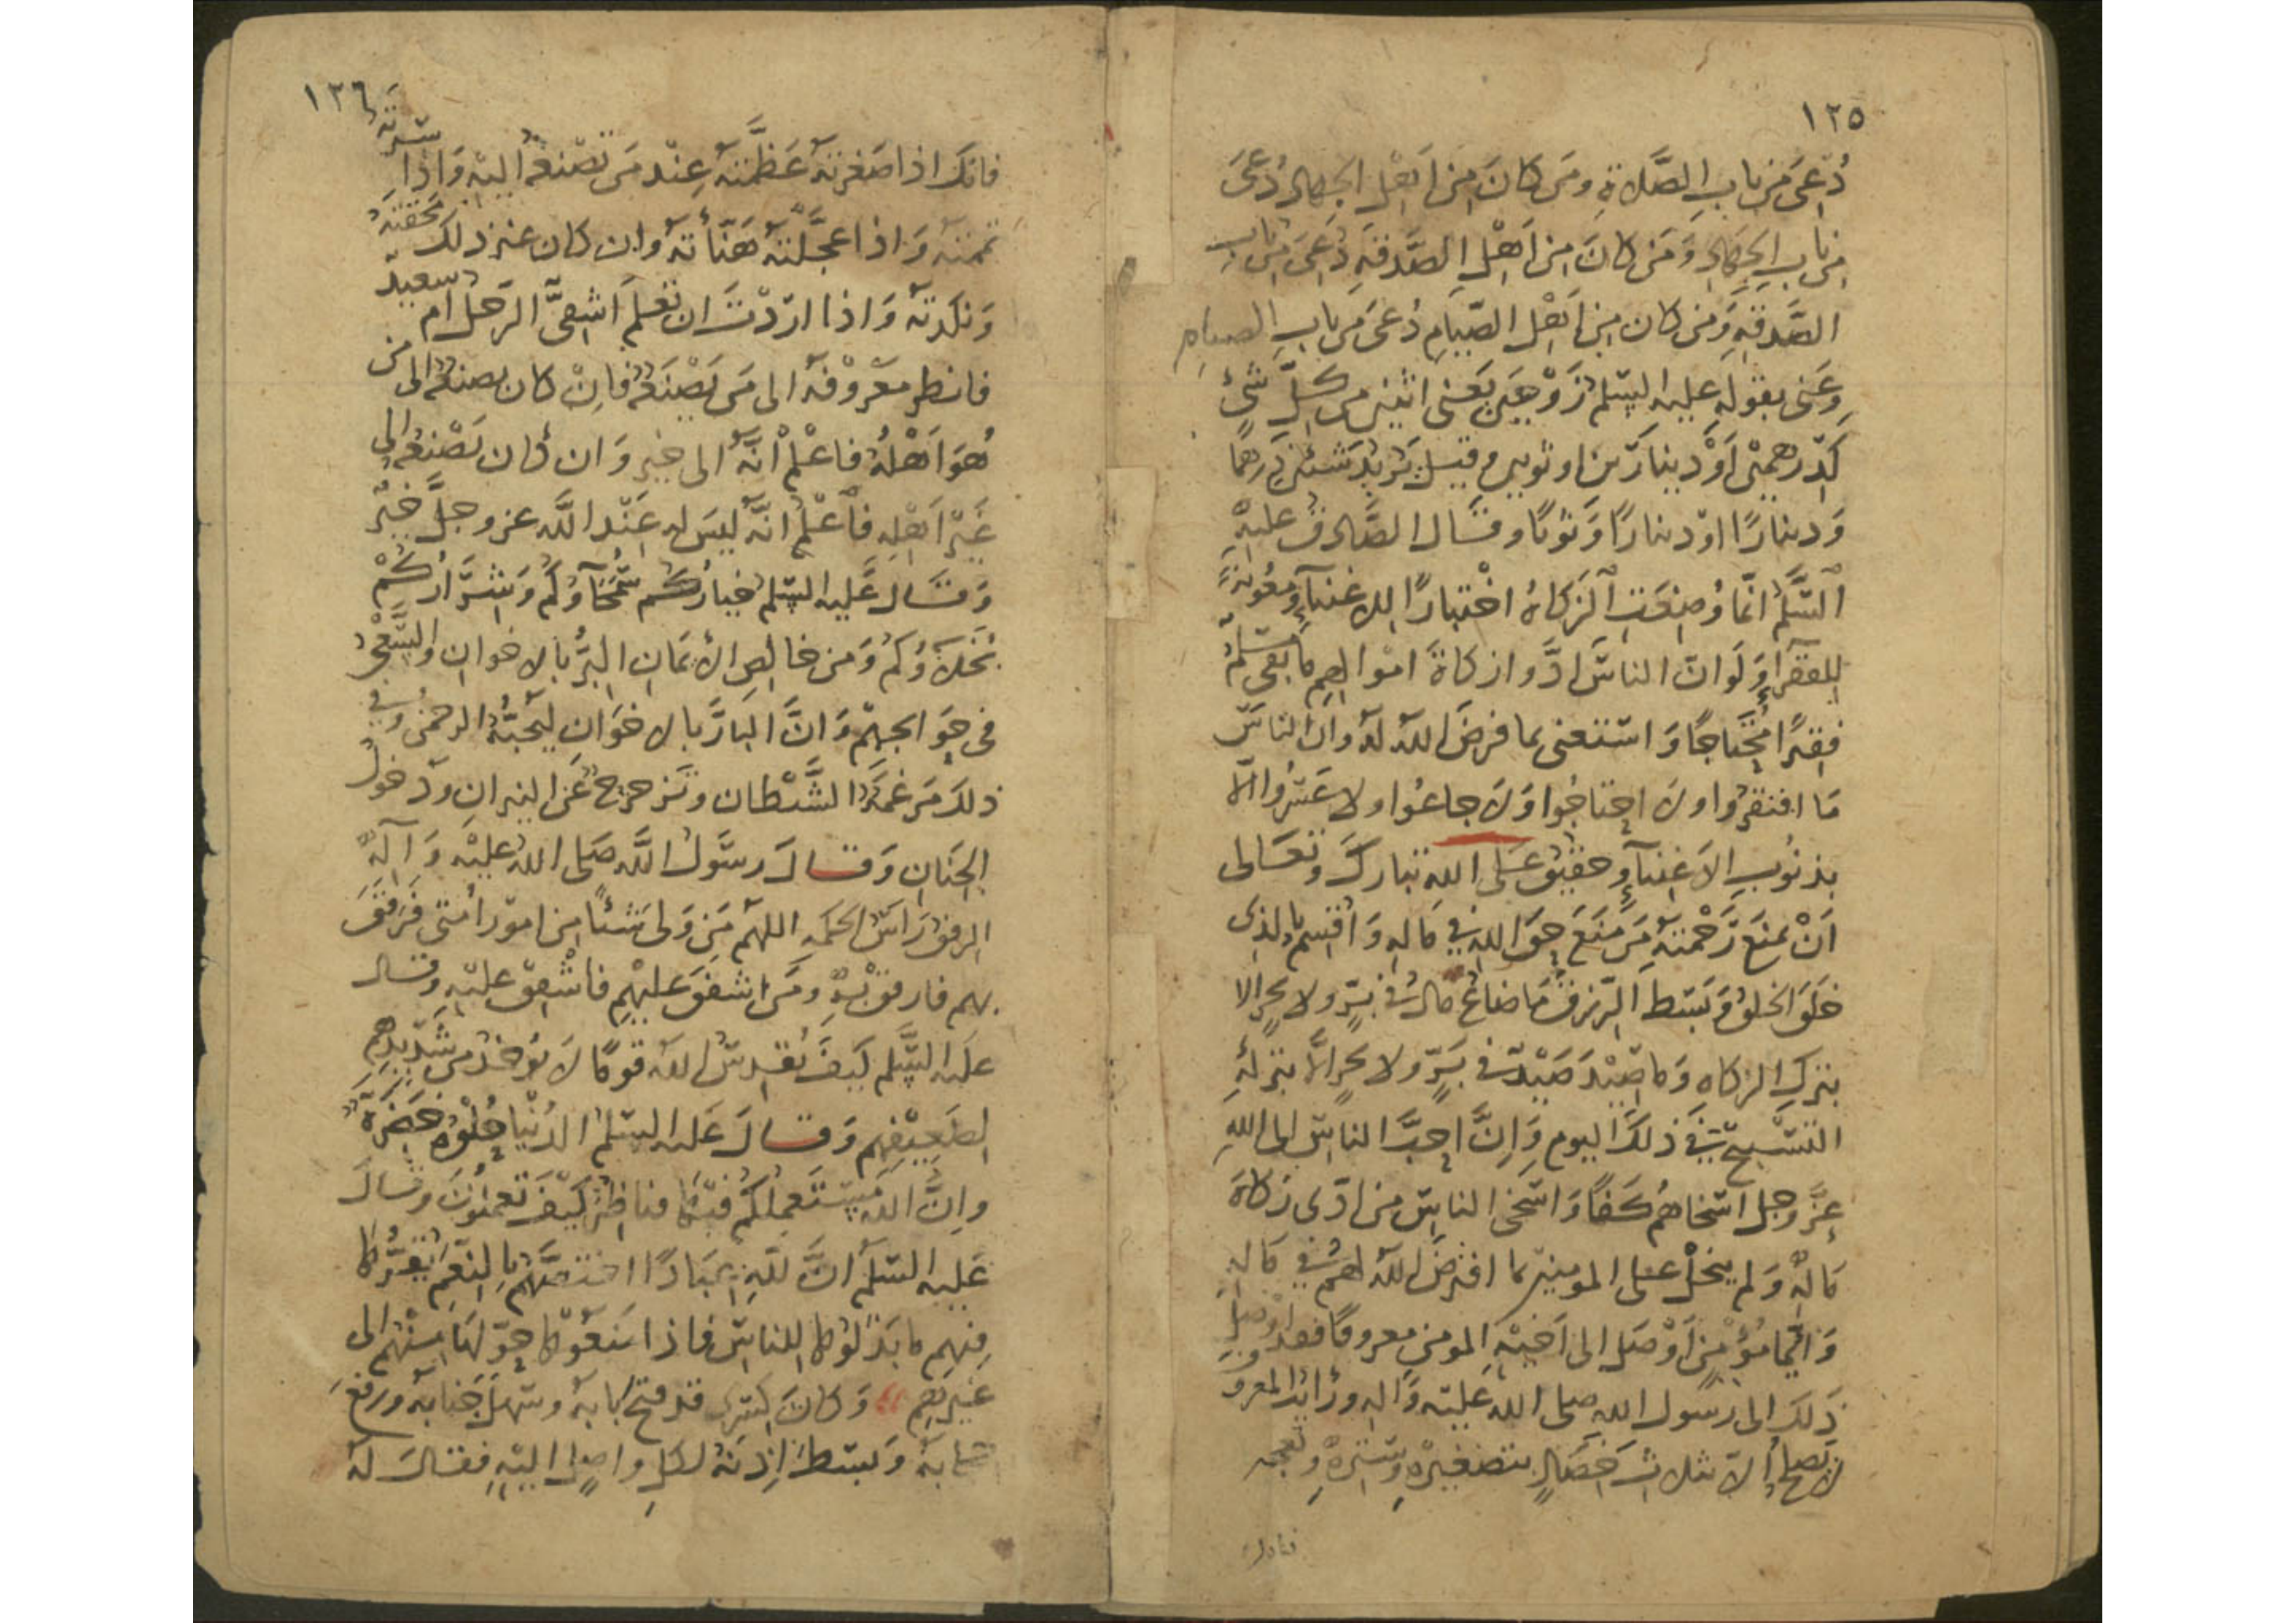 ١٢٥
دُعِىَ من باب الصَّلاةِ ومَن كانَ مِن اَهْلِ الجهاد دُعىَ
من باب الجِهَادِ وَمَن كانَ مِن اَهْلِ الصَّدقةِ دُعِىَ مِن باب
الصَّدقةِ وَمَن كان مِن اَهْلِ الصِّيامِ دُعىَ مِن بابِ الصيام
وَعَنى بقولهِ عليه السلم زَوْجَين يَعنى اثنين من كلّ شئ
كدِرهمينْ اَوْ دينارَين او ثوبين وقيل يُريد شيئين درهمًا
وَدينارًا اوْ دينارًا وَثوبًا وقَال الصَّادق عليه
السَّلم انّما وُضِعَتِ الزَكاةُ اختبارًا للاغنيآءِ ومعُونةً
للفقرآءِ وَلَو انّ الناسَ ادَّوا زكاةَ اموالهِم ما بقى مسلمٌ
فقيرًا مُحتَاجًا وَاستغنى بما فرضَ اللهُ لهُ وانّ الناسَ
مَا افتقرُوا ولا احتاجُوا وَلا جاعُوا ولا عَـُروا الّا
بذنُوبِ الاَغنيآءِ وحقيقٌ عَلى اللهِ تبارك وتعَالى
اَنْ يمنعَ رَحْمتهُ مَن مَنَعَ حقّ اللهِ في مَالهِ وَاُقسِمُ بالذى
خلَقَ الخلقَ وَبَسَط الرّزقَ مَا ضاعَ مالٌ في برٍّ ولا بحرٍ الا
بتركِ الزكاهِ وَما صِيْدَ صَيْدٌ في بَرٍّ ولا بحرٍ الّا بتركهِ
التسْبيحَ في ذلكَ اليوم وَاِنَّ احبَّ الناسِ الى اللهِ
عزّ وجل اسخاهُم كَفًّا وَاسخى الناسِ من ادّى زكاةَ
مَالهِ وَلم يبخلْ على المومنين بما افترضَ اللهُ لهُم في مَالهِ
وَايُّما مُؤْمنٍ اَوْصَلَ الى اَخيْهِ المومنِ معروفًا فقد اوْصَلَ
ذَلكَ الى رَسول اللهِ صلى اللهُ عليه وَاله ورَاَيتُ المعروف
لا يَصلحُ اِلّا بثلاث خصَالٍ بتصْغيْرهِ وسَترهِ وتعجيله
فانك
١٢٦
فانكَ اذا صَغرتَهُ عَظَّمتَهُ عِنْد مَن تصْنعُهُ اليْهِ وَاِذا سَترتَهُ
تممتَهُ وَاذا عجَّلتَهُ هَنّأتهُ وان كان غير ذلك محقتهُ
وَنكدتهُ وَاذا ارَدْتَ ان تعْلمَ اَشقىٌّ الرَجل ام سعيدٌ
فانظر معْروْفهُ الى مَن يَصْنَعُهُ فاِنْ كان يصنعُهُ الى من
هُوَ اَهْلُهُ فاعْلمْ انَّهُ الى خيرٍ وَان كان يَصْنعُهُ الى
غَيْرِ اَهْلِهِ فاعْلمْ انَّهُ ليسَ لهِ عِنْد اللَّه عز وجلَّ خيْرٌ
وَقَال عَليه السّلم خيارُكُم سُمَحَآؤكُم وَشرَّارُكُمْ
بُخَلآؤُكُم وَمن خالِصِ الاْيمَانِ البِرُّ بالاخوانِ والسَّعْىُ
فى حوَائجهِمْ وَانَّ البَارَّ بالاخوَانِ ليُحبُّهُ الرحمنُ وَفي
ذلكَ مَرغَمَةُ الشَّيْطان وتَزحزح عَنِ النيرانِ ودخولُ
الجِنَانِ وَقَالَ رسُولُ اللَّه صَلى اللهُ عليْهِ وَآلِهِ
الرفقُ رَاسُ الحكمَهِ اللهُمّ مَن وَلىَ شيئًا مِن امور امتى فَرَفقَ
بهم فارفق بهِ ومَن اشفقَ عليْهِم فاشْفق عليْهِ وقال
عليه السَّلم كيْفَ يُقدِسُ اللهُ قومًا لا يُوخذ من شَدِيدِهِم
لِضَعِيْفِهِم وَقَالَ عَليه السّلم الدُنْيا حُلْوَةٌ خَضِرَةٌ
واِنَّ اللهَ مُسْتَعمِلكُم فيْهَا فناظرٌ كَيْفَ تعمَلُونَ وقَالَ
عَليه السّلم انَّ للّهِ عِبَادًا اختصَّهُم بالنِعَمِ يُقِرُّها
فِيهِم ما بَذَلُوها للناسِ فاذا مَنعُوْها حوَّلهَا مِنْهُم الى
غيرِهِم وَكانَ كسرى قد فتح بابهُ وسَهَّلَ جَنابهُ ورفعَ
حجابَهُ وَبسَطَ اِذنَهُ لكلِ واصلٍ اليْهِ فقالَ لهُ